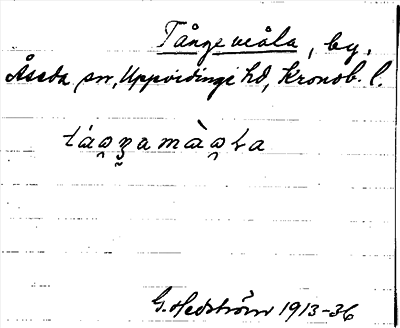 Tångemåla, by,
Åseda sn, Uppvidinge hd, Kronob. l.
G. Hedström 1913-36